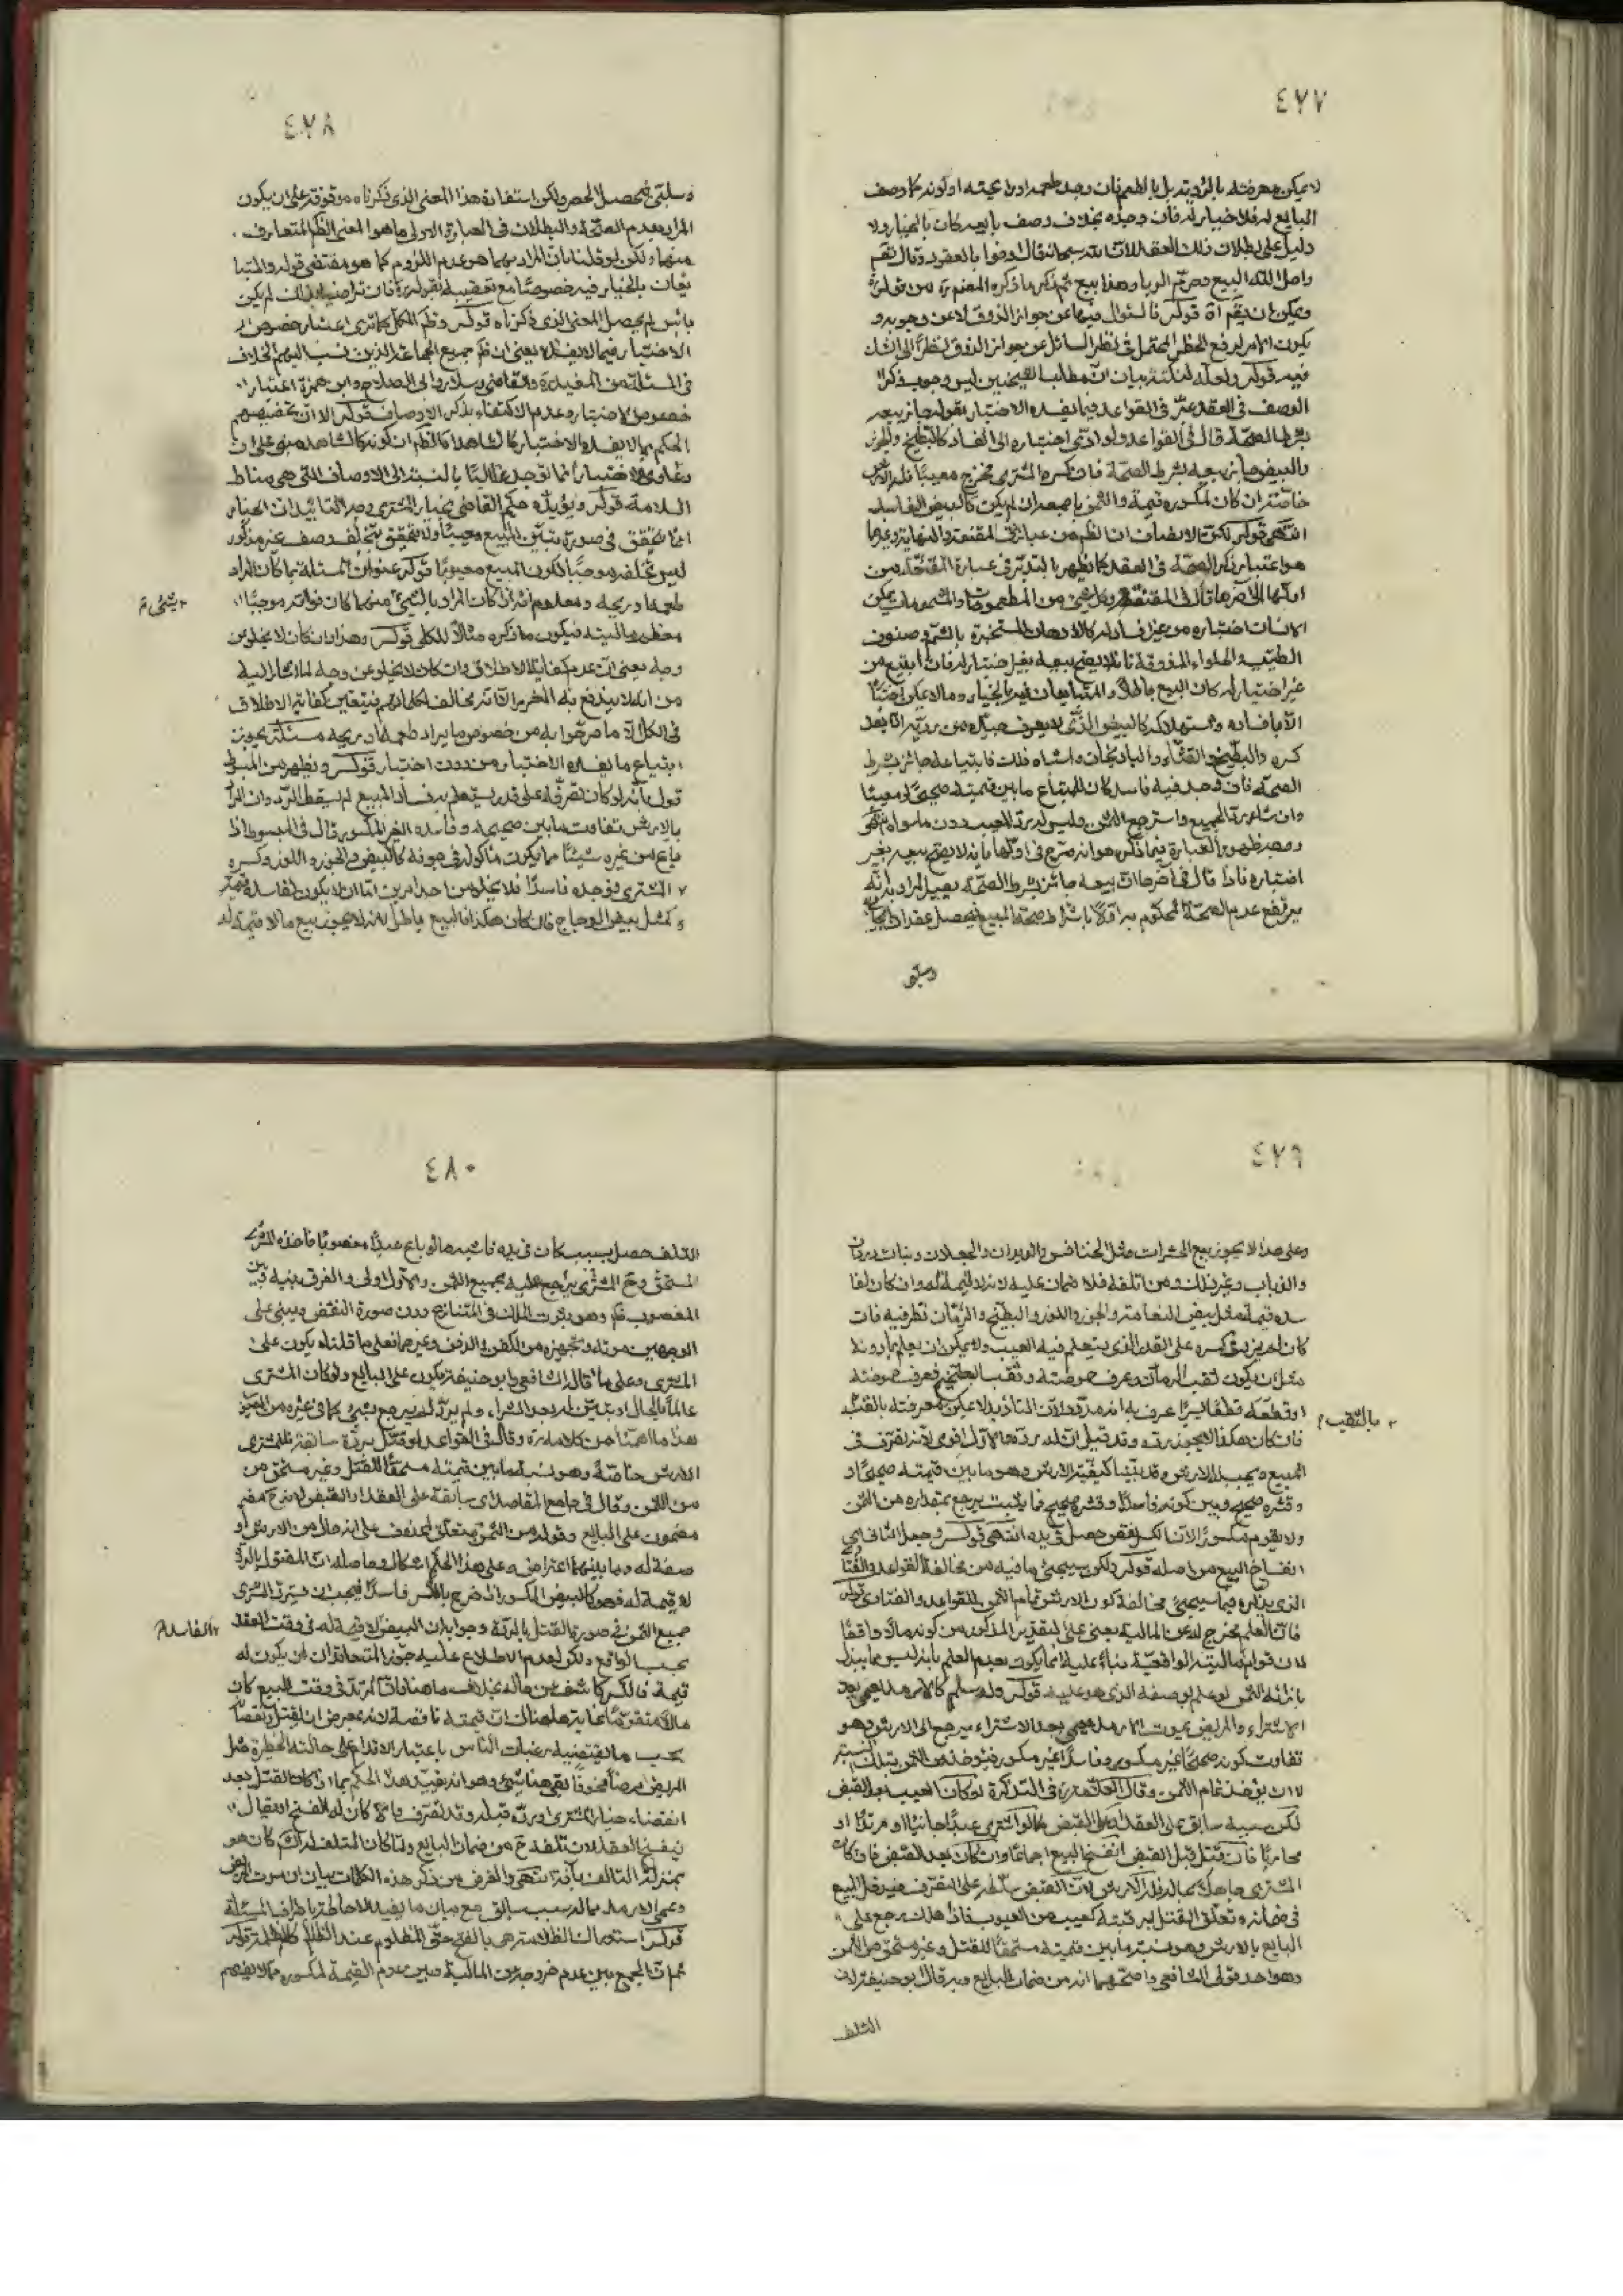 ٤٧٧
لا يمكن معرفته بالرؤية بل بالطعم فان وجد طعمه او رايحته او لونه كما وصف
البايع له فلا خيار له فان وجده بخلاف وصف بايعه كان بالخيار ولا
دليل على بطلان ذلك العقد لان الله سبحانه قال اوفوا بالعقود وقال تعم
واحل الله البيع وحرم الربا وهذا بيع ثم ذكر ما ذكره المصنف ره من قوله
ويمكن ان يقم آه قوله فالسؤال فيها عن جواز الذوق لا عن وجوبه و
يكون الامر لرفع الحظر المحتمل في نظر السائل عن جواز الذوق نظرا الى الشك
فيه قوله ولعله لنكتة بيان ان مطلب الشيخين ليس وجوب ذكر
الوصف في العقد عبر في القواعد فيما يفسده الاختبار بقوله جاز بيعه
بشرط الصحة قال في القواعد ولو ادى اختباره الى الفساد كالبطيخ والجوز
والبيض جاز بيعه بشرط الصحة فان كسره المشتري فخرج معيبا فله الارش
خاصة ان كان لمكسوره قيمة والثمن باجمعه ان لم يكن كالبيض الفاسد
انتهى قوله لكن الانصاف ان الظم من عبارتي المقنعة والنهاية وغيرهما
هو اعتبار ذكر الصحة في العقد كما يظهر بالتدبر في عبارة المقنعة من
اولها الى اخرها قال في المقنعة وكل شيء من المطعومات والمشمومات يمكن
الانسان اختباره من غير افساد له كالادهان المستخبرة بالشم وصنوف
الطيب والحلواء المذوقة فانه لا يصح بيعه بغير اختبار له فان ابتيع من
غير اختبار له كان البيع باطلا والمتبايعان فيه بالخيار وما لا يمكن اختباره
الا بافساده واستهلاكه كالبيض الذي لا يعرف جيده من رديه الا بعد
كسره والبطيخ والقثاء والباذنجان واشباه ذلك فابتياعه جائز بشرط
الصحة فان وجد فيه فاسد كان للمبتاع ما بين قيمته صحيحا ومعيبا
وان شاء رد الجميع واسترجع الثمن وليس له رد المعيب دون ما سواه انتهى
ووجه ظهور العبارة فيما ذكر هو انه صرح في اولها بانه لا يصح بيعه بغير
اختباره فاذا قال في اخرها ان بيعه جائز بشرط الصحة يصير المراد به انه
يرتفع عدم الصحة المحكوم به اولا باشتراط صحة المبيع فيحصل عقد ايجابي
وسلبي
٤٧٨
وسلبي فيحصل الحصر ولكن استفادة هذا المعنى الذي ذكرناه موقوفة على ان يكون
المراد بعدم الصحة والبطلان في العبارة الاولى ما هو المعنى الظم المتعارف
منهما ولكن لو قلنا بان المراد بهما هو عدم اللزوم كما هو مقتضى قوله والمتبا
يعان بالخيار فيه خصوصا مع تعقيبه بقوله ره فان تراضيا بذلك لم يكن
باس لم يحصل المعنى الذي ذكرناه قوله وظم الكل كما ترى اعتبار خصوص
الاختبار فيما لا يفسده يعنى ان ظم جميع الجماعة الذين نسب اليهم الخلاف
في المسئلة من المفيد ره والقاضي وسلار وابي الصلاح وابن حمزة اعتبار
خصوص الاختبار وعدم الاكتفاء بذكر الاوصاف قوله الا ان تخصيصهم
الحكم بما لا يفسده الاختبار كالشاهد كالظم ان كونه كالشاهد مبنى على ان
دعاوى الاختبار انما توجد غالبا بالنسبة الى الاوصاف التي هي مناط
السلامة قوله ويؤيده حكم القاضي بخيار المشتري وجه التاييد ان الخيار
انما يتحقق في صورة تبين المبيع معيبا ولا يتحقق بتخلف وصف غير مذكور
ليس تخلفه موجبا لكون المبيع معيوبا قوله عنوان المسئلة بما كان المراد
طعمه او ريحه ومعلوم انه اذا كان المراد بالشيء منهما كان فواته موجبا
يشئ م
معظم ماليته فيكون ما ذكره مثالا للكلي قوله وهذا وان كان لا يخلو من
وجه يعنى ان عدم كفاية الاطلاق وان كان لا يخلو عن وجه لما اشار اليه
من انه لا يندفع به الغرر الا انه مخالف لكلماتهم فيتعين كفاية الاطلاق
في الكل الا ما صرحوا به من خصوص ما يراد طعمه او ريحه مسئلة يجوز
ابتياع ما يفسده الاختبار من دون اختبار قوله ويظهر من المبسوط
قول بانه لو كان تصرفه على قدر يستعلم به فساد المبيع لم يسقط الرد وان المراد
بالارش تفاوت ما بين صحيحه وفاسده الغير المكسور قال في المبسوط اذا
باع من غيره شيئا مما يكون ماكوله في جوفه كالبيض والجوز واللوز وكسره
المشتري فوجده فاسدا فلا يخلو من احد امرين اما ان لا يكون لفاسده قيمة
كمثل بيض الدجاج فان كان هكذا فالبيع باطل لانه لا يجوز بيع ما لا قيمة له
٤٧٩
وعلى هذا لا يجوز بيع الحشرات مثل الخنافس والديدان والجعلان وبنات وردان
والذباب وغير ذلك ومن اتلفه فلا ضمان عليه لانه لا قيمة له وان كان لفا
سده قيمة مثل بيض النعامة والجوز واللوز والبطيخ والرمان نظر فيه فان
كان لم يزد في كسره على القدر الذي يستعلم فيه العيب ولا يمكن ان يعلم بما دونه
مثل ان يكون ثقب الرمان وعرف حموضته وثقب البطيخ فعرف حموضته
او قطعه قطعا يسيرا عرف به انه مدود لان التدويد لا يمكن معرفته بالثقب
بالثقب م
فان كان هكذا لا يجوز رده وقد قيل ان له رده والاول اقوى لانه تصرف في
المبيع ويجب له الارش وقد بينا كيفية الارش وهو ما بين قيمته صحيحا و
وقشره صحيح وبين كونه فاسدا وقشره صحيح فما يثبت يرجع بمقداره من الثمن
ولا يقوم مكسورا لان الكسر نقص حصل في يده انتهى قوله وجعل الثاني اي
انفساخ البيع من اصله قوله ولكن سيجيء ما فيه من مخالفة القواعد والفتاوى
الذي يذكره فيما سيجيء مخالفة كون الارش تمام الثمن للقواعد والفتاوى قوله
فان العلم مخرج له عن المالية يعنى على التقدير المذكور من كونه مالا واقعا
لان قوام ماليته الواقعية بناء عليه انما يكون بعدم العلم بانه ليس مما يبذل
بازائه الثمن لو علم بوصفه الذي هو عليه قوله وله سلم كالارمد يعمى بعد
الاشتراء والمريض يموت الارمد يعمى بعد الاشتراء يرجع الى الارش وهو
تفاوت كونه صحيحا غير مكسور وفاسدا غير مكسور فيؤخذ من الثمن بتلك النسبة
لا ان يؤخذ تمام الثمن وقال العلامة ره في التذكرة لو كان العيب بعد القبض
لكن سببه سابق على العقد او على القبض كما لو اشترى عبدا جانيا او مرتدا او
محاربا فان قتل قبل القبض انفسخ البيع اجماعا وان كان بعد القبض فان كان
المشتري جاهلا بحاله فله الارش لان القبض سلطه على التصرف فيدخل المبيع
في ضمانه وتعلق القتل برقبته كعيب من العيوب فاذا هلك يرجع على
البايع بالارش وهو نسبة ما بين قيمته مستحقا للقتل وغير مستحق من الثمن
وهو احد قولي الشافعي واصحهما انه من ضمان البايع وبه قال ابو حنيفة لان
التلف
٤٨٠
التلف حصل بسبب كان في يده فاشبه ما لو باع عبدا مغصوبا فاخذه المشتري
المستحق وح المشتري يرجع عليه بجميع الثمن والاول اولى والفرق بينه وبين
المغصوب ظم وهو ثبوت الملك في المتنازع دون صورة النقض ويبنى على
الوجهين مؤنة تجهيزه من الكفن والدفن وغيرهما فعلى ما قلناه يكون على
المشتري وعلى ما قال الشافعي وابو حنيفة يكون على البايع ولو كان المشتري
عالما بالحال او تبين له بعد الشراء ولم يرد لم يرجع بشيء كما في غيره من العيوب
هذا ما اهمنا من كلامه ره وقال في القواعد لو قتل بردة سابقة فللمشتري
الارش خاصة وهو نسبة ما بين قيمته مستحقا للقتل وغير مستحق من
من الثمن وقال في جامع المقاصد اي سابقة على العقد او القبض لانه ح غير
مضمون على البايع وقوله من الثمن متعلق بمحذوف على انه حال من الارش او
صفة له وما بينهما اعتراض وعلى هذا الحكم اشكال وحاصله ان المقتول بالردة
لا قيمة له فهو كالبيض المكسور اذا خرج بالكسر فاسدا فيجب ان يسترد المشتري
جميع الثمن في صورة القتل بالردة وجوابه ان البيض لا قيمة له في وقت العقد
الفاسد م
بحسب الواقع ولكن لعدم الاطلاع عليه جوز المتعاقدان ان يكون له
قيمة فالكسر كاشف عن حاله بخلاف ما هنا فان المرتد في وقت البيع كان
مالا متقوما غاية ما هناك ان قيمته ناقصة لانه معرض ان يقتل ونقصا
بحسب ما يقتضيه رغبات الناس باعتبار الاقدام على حالته الخطرة مثل
المريض مرضا مخوفا بقي هنا شيء وهو انه يجب تقييد هذا الحكم بما اذا كان القتل بعد
انقضاء خيار المشتري او رده قبله وقد تصرف والا كان له الفسخ انتهى
بمنزلة التالف بآفة انتهى والغرض من ذكر هذه الكلمات بيان ان موت المريض
وعمى الارمد مما له سبب سابق مع بيان ما يفيد الاحاطة باطراف المسئلة
قوله استدراك الظلامة هي بالضم حق المظلوم عند الظالم كالمظلمة قوله
ثم ان الجمع بين عدم خروجه عن المالية وبين عدم القيمة لمكسوره مما لا يفهم